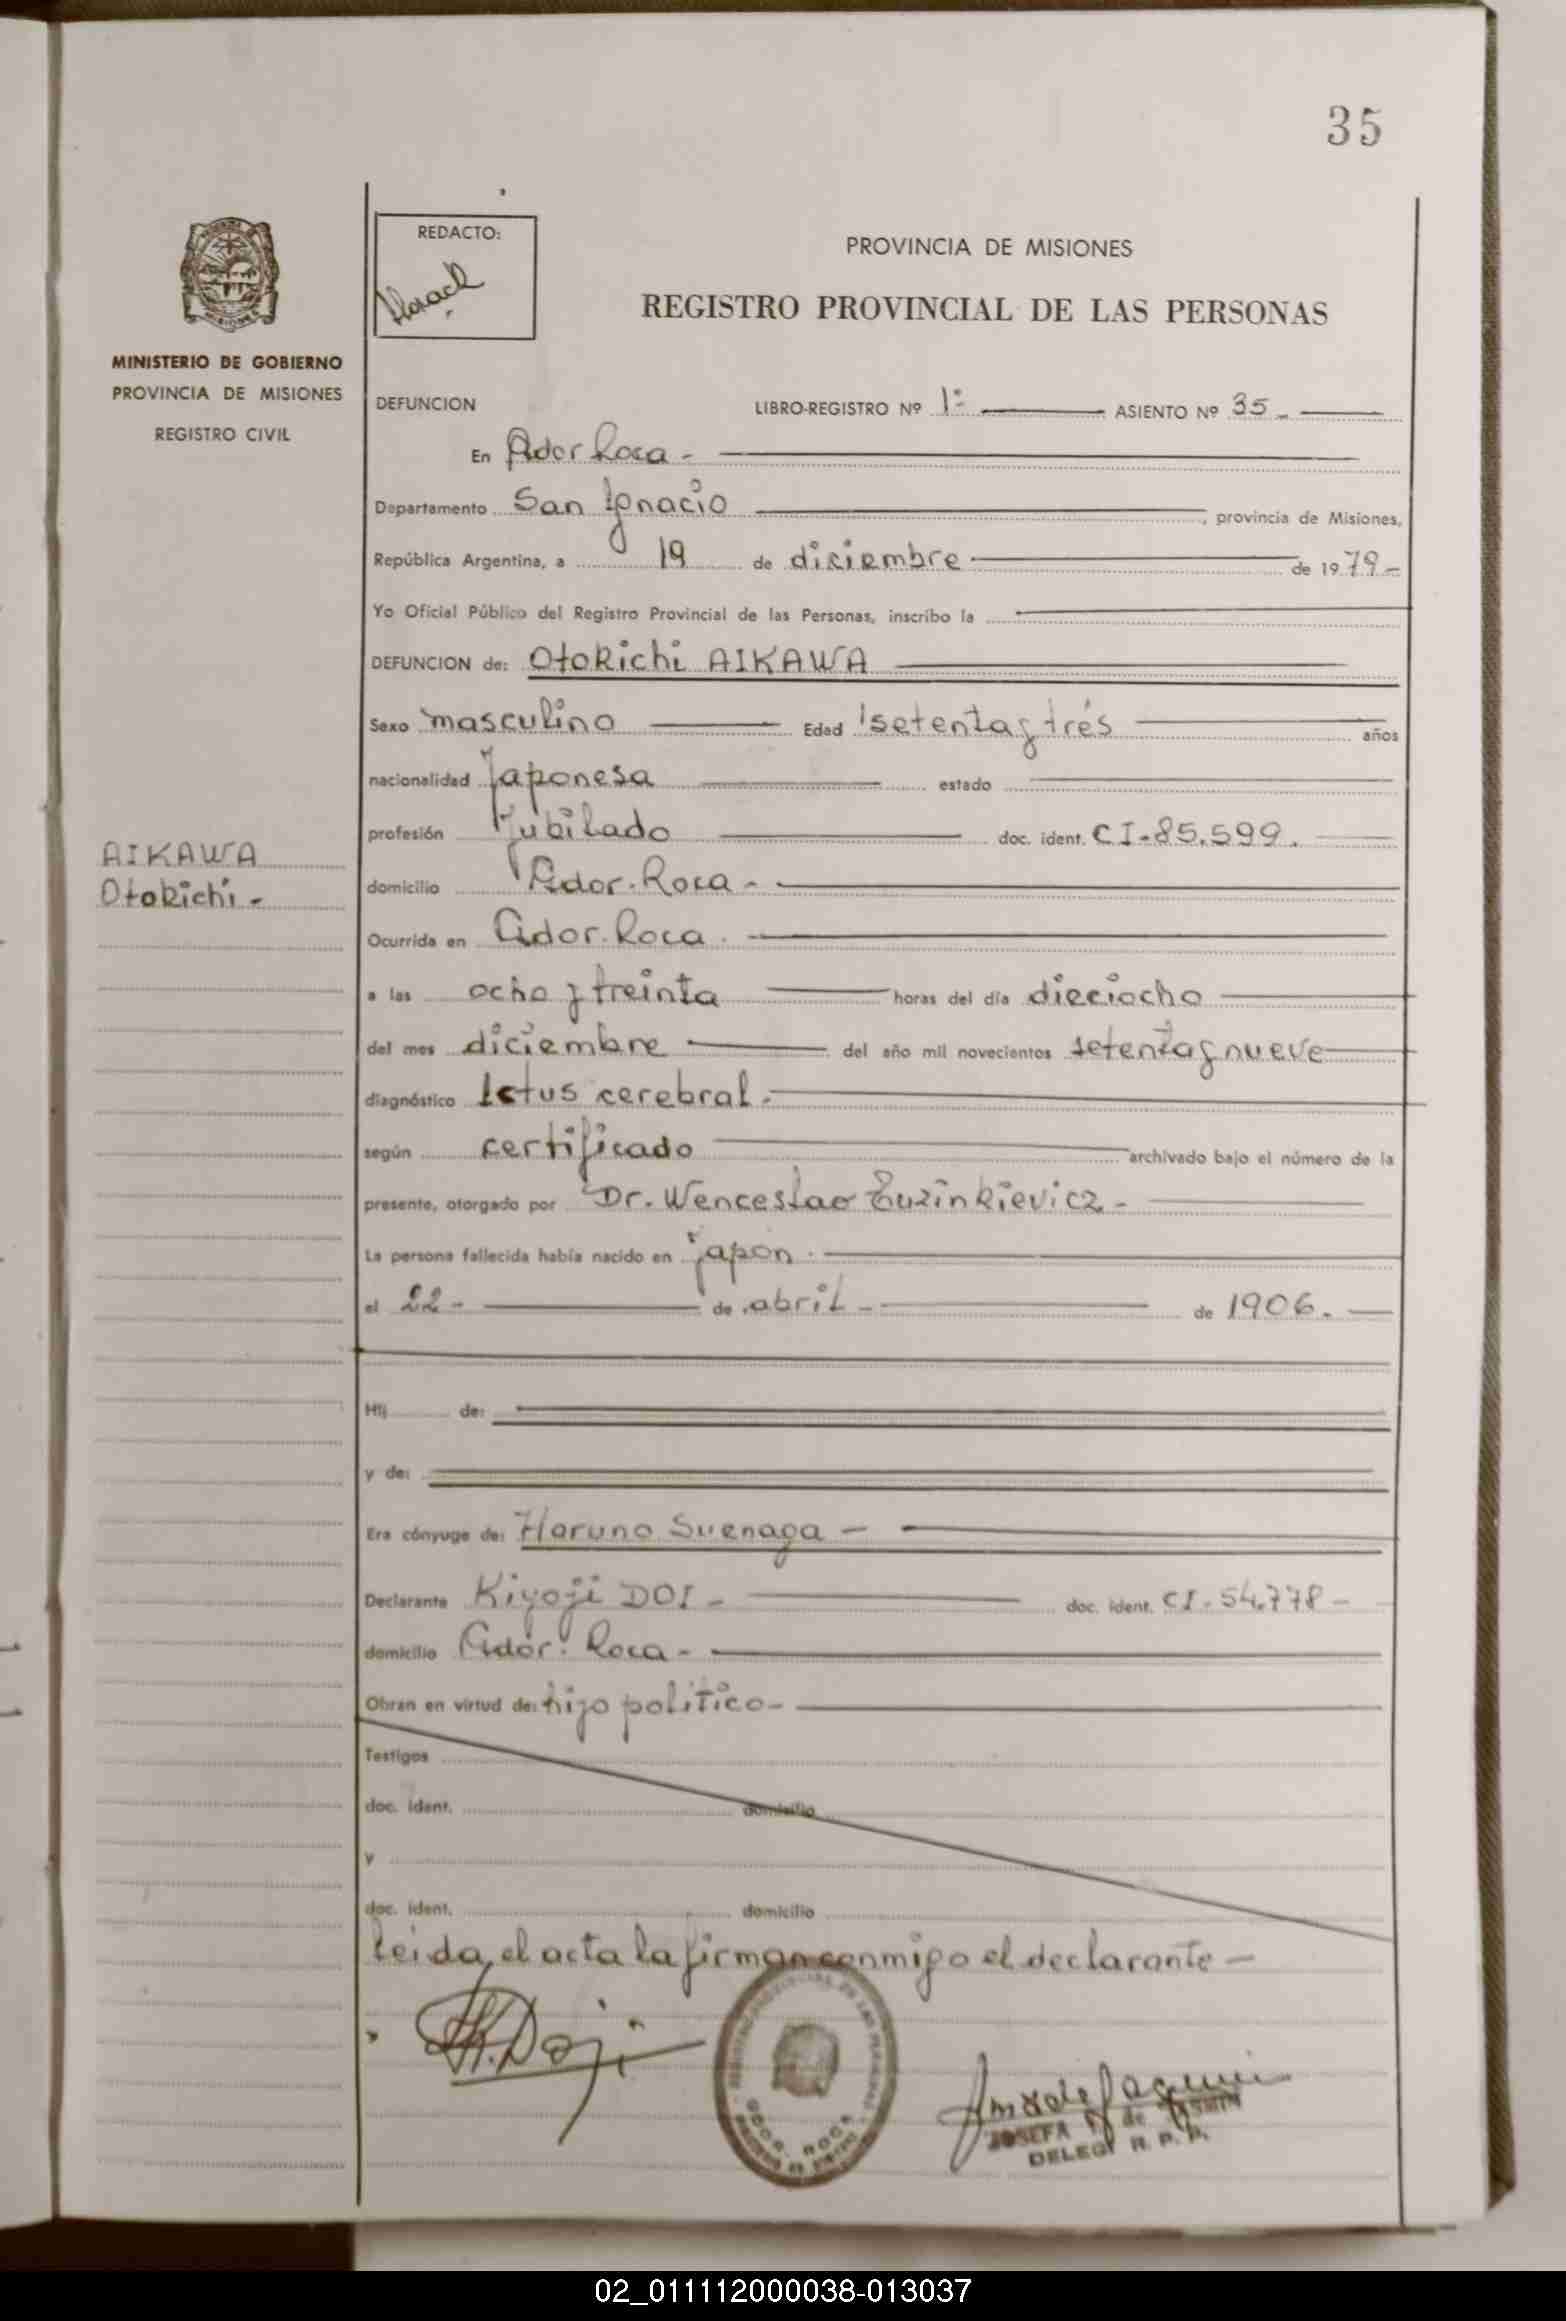 35
REDACTO:
PROVINCIA DE MISIONES
REGISTRO PROVINCIAL DE LAS PERSONAS
MINISTERIO DE GOBIERNO
PROVINCIA DE MISIONES
REGISTRO CIVIL
DEFUNCION LIBRO-REGISTRO Nº 1º ASIENTO Nº 35-
En Gdor Roca -
Departamento San Ignacio, provincia de Misiones,
República Argentina, a 19 de diciembre de 1979-
Yo Oficial Público del Registro Provincial de las Personas, inscribo la
DEFUNCION de: Otokichi AIKAWA
Sexo masculino Edad setenta y trés años
nacionalidad japonesa estado
profesión jubilado doc. ident. CI-85.599.
AIKAWA
Otokichi -
domicilio Gdor. Roca -
Ocurrida en Gdor. Roca.
a las ocho y treinta horas del día dieciocho
del mes diciembre del año mil novecientos setenta y nueve
diagnóstico Ictus cerebral.
según certificado archivado bajo el número de la
presente, otorgado por Dr. Wenceslao
La persona fallecida había nacido en japón.
el 22- de abril - de 1906.
Hij de:
y de:
Era cónyuge de: Haruno Suenaga -
Declarante Kiyoji DOI - doc. ident. CI-54.778-
domicilio Gdor. Roca -
Obran en virtud de: hijo político -
Testigos
doc. ident. domicilio
y
doc. ident. domicilio
leida, el acta la firman conmigo el declarante -
K. Doji
GDOR. ROCA
JOSEFA de
DELEG. R. P. P.
02_011112000038-013037